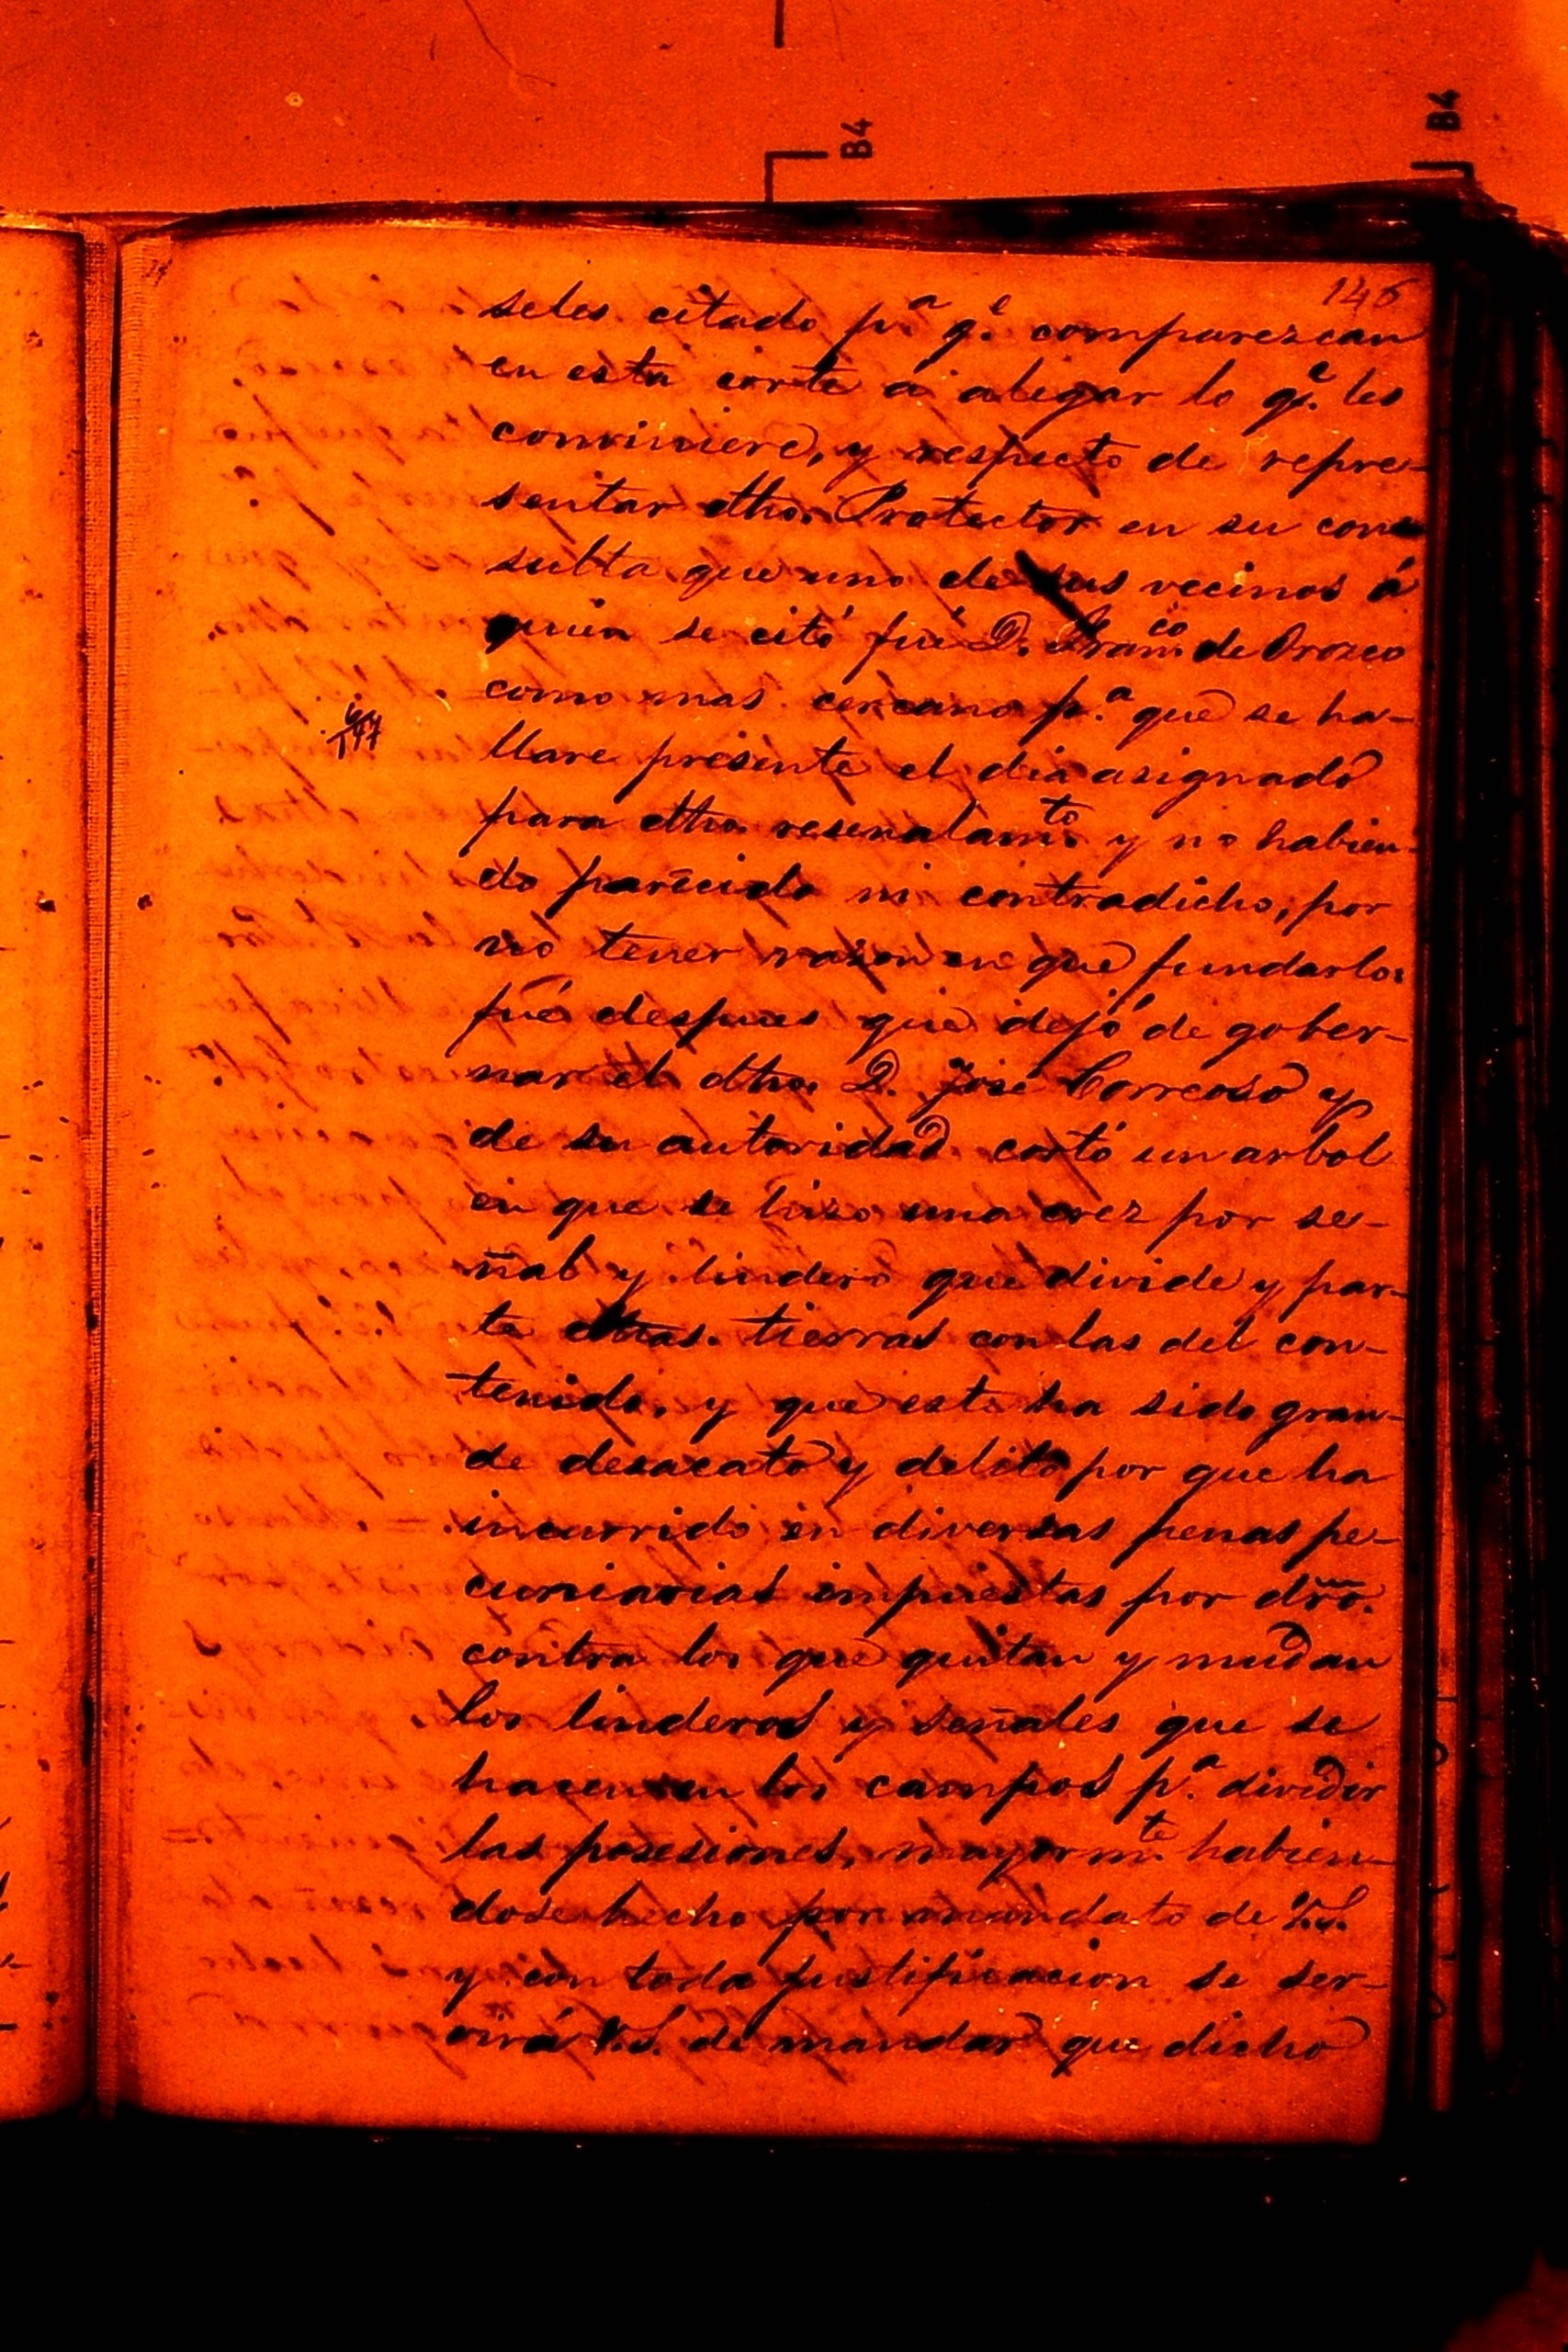 B4
B4
146
seles citado p.ª q.e comparezcan
en esta corte á alegar lo q.e les
conviniere, y respecto de repre-
sentar dtho. Protector en su con-
sulta que uno de sus vecinos á
quien se citó fué D. Fran.co de Orozco
como mas cercano p.ª que se ha-
llare presente el dia asignado
para dtho. resenalam.to y no habien-
do parecido ni contradicho, por
no tener razon en que fundarlo,
fué despues que dejó de gober-
nar el dtho. D. José Correoso y
de su autoridad cortó un arbol
en que se hizo una crez por se-
ñal y lindero que divide y par-
te dthas. tierras con las del con-
tenido, y que este ha sido gran-
de desacato y delito por que ha
incurrido en diversas penas pe-
cuniarias impuestas por dro.
contra los que quitan y mudan
los linderos y señales que se
hacen en los campos p.ª dividir
las posesiones, mayorm.te habien-
dose hecho por mandato de V.S.
y con toda justificacion se ser-
virá V.S. de mandar que dicho